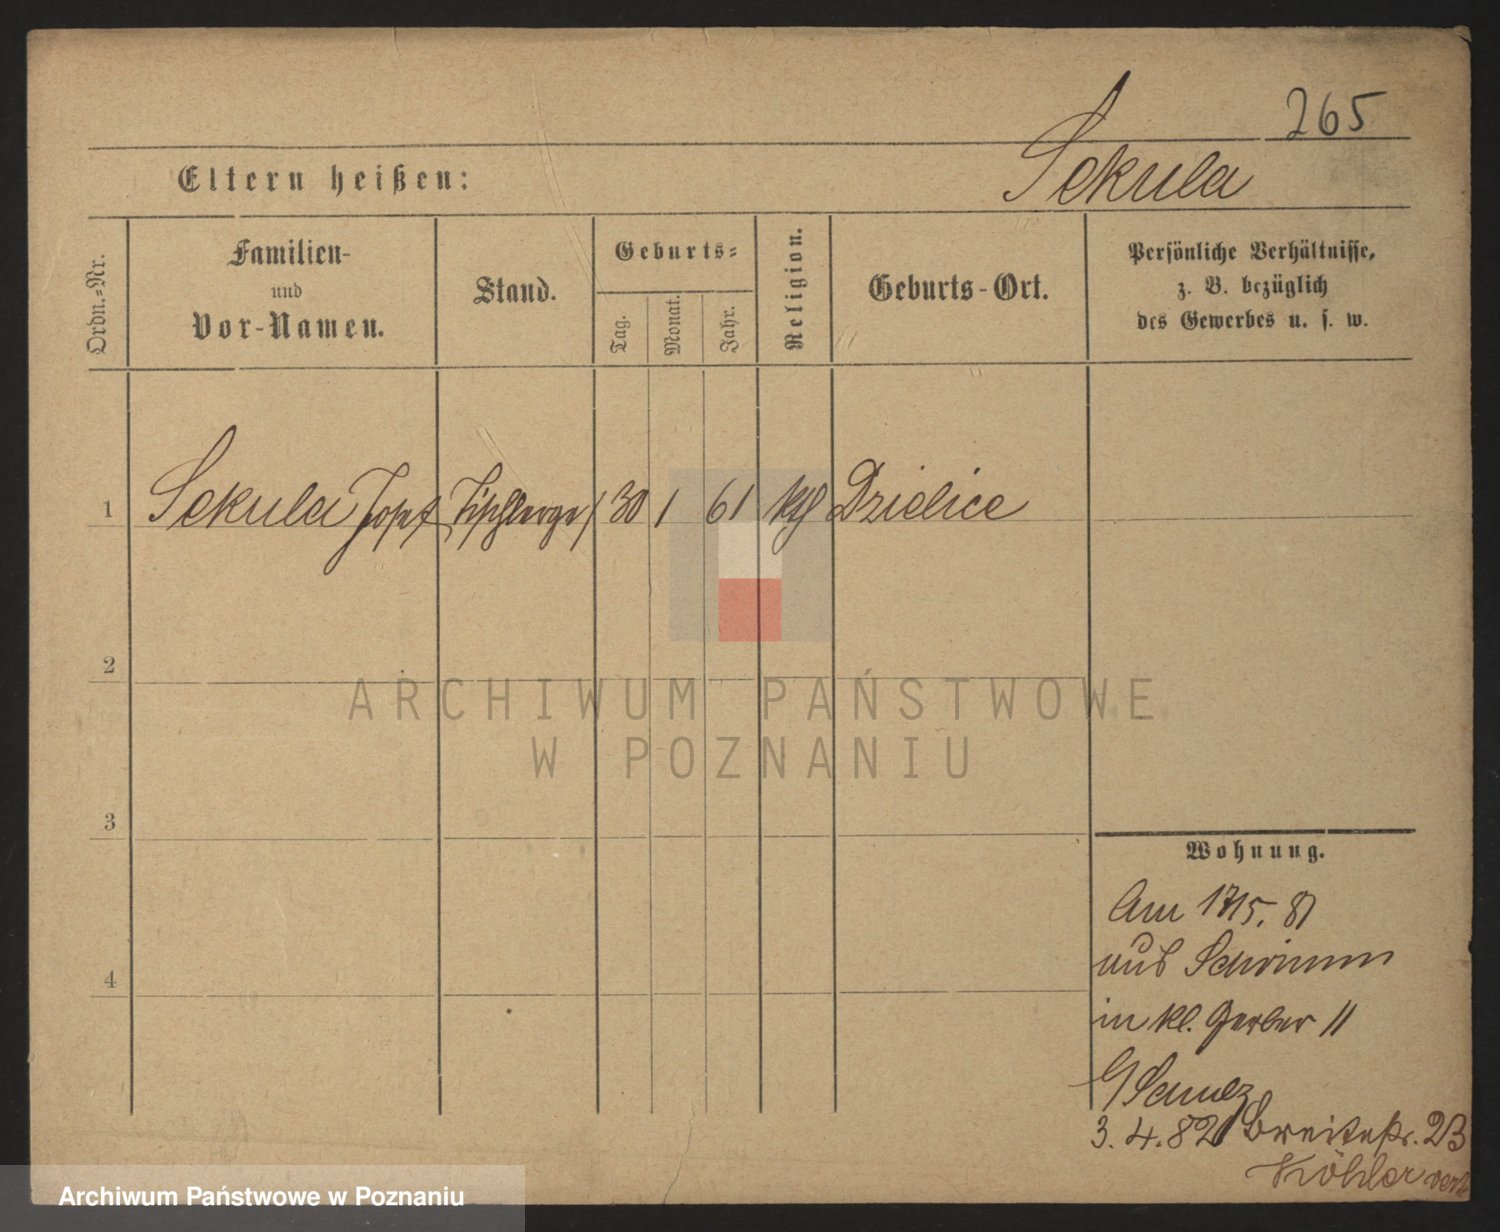 265
Sekula
Eltern heißen:
Ordn.-Nr.
Familien-
und
Vor-Namen.
Stand.
Geburts-
Tag.
Monat.
Jahr.
Religion.
Geburts-Ort.
Persönliche Verhältnisse,
z. B. bezüglich
des Gewerbes u. s. w.
1 Sekula Josef Tischlerges 30 1 61 kth Dzielice
2
ARCHIWUM PAŃSTWOWE
W POZNANIU
3
Wohnung.
Am 17/5. 81
aus Schrimm
4
in kl. Gerber 11
3. 4. 82 Breitestr. 23
Köhler
Archiwum Państwowe w Poznaniu